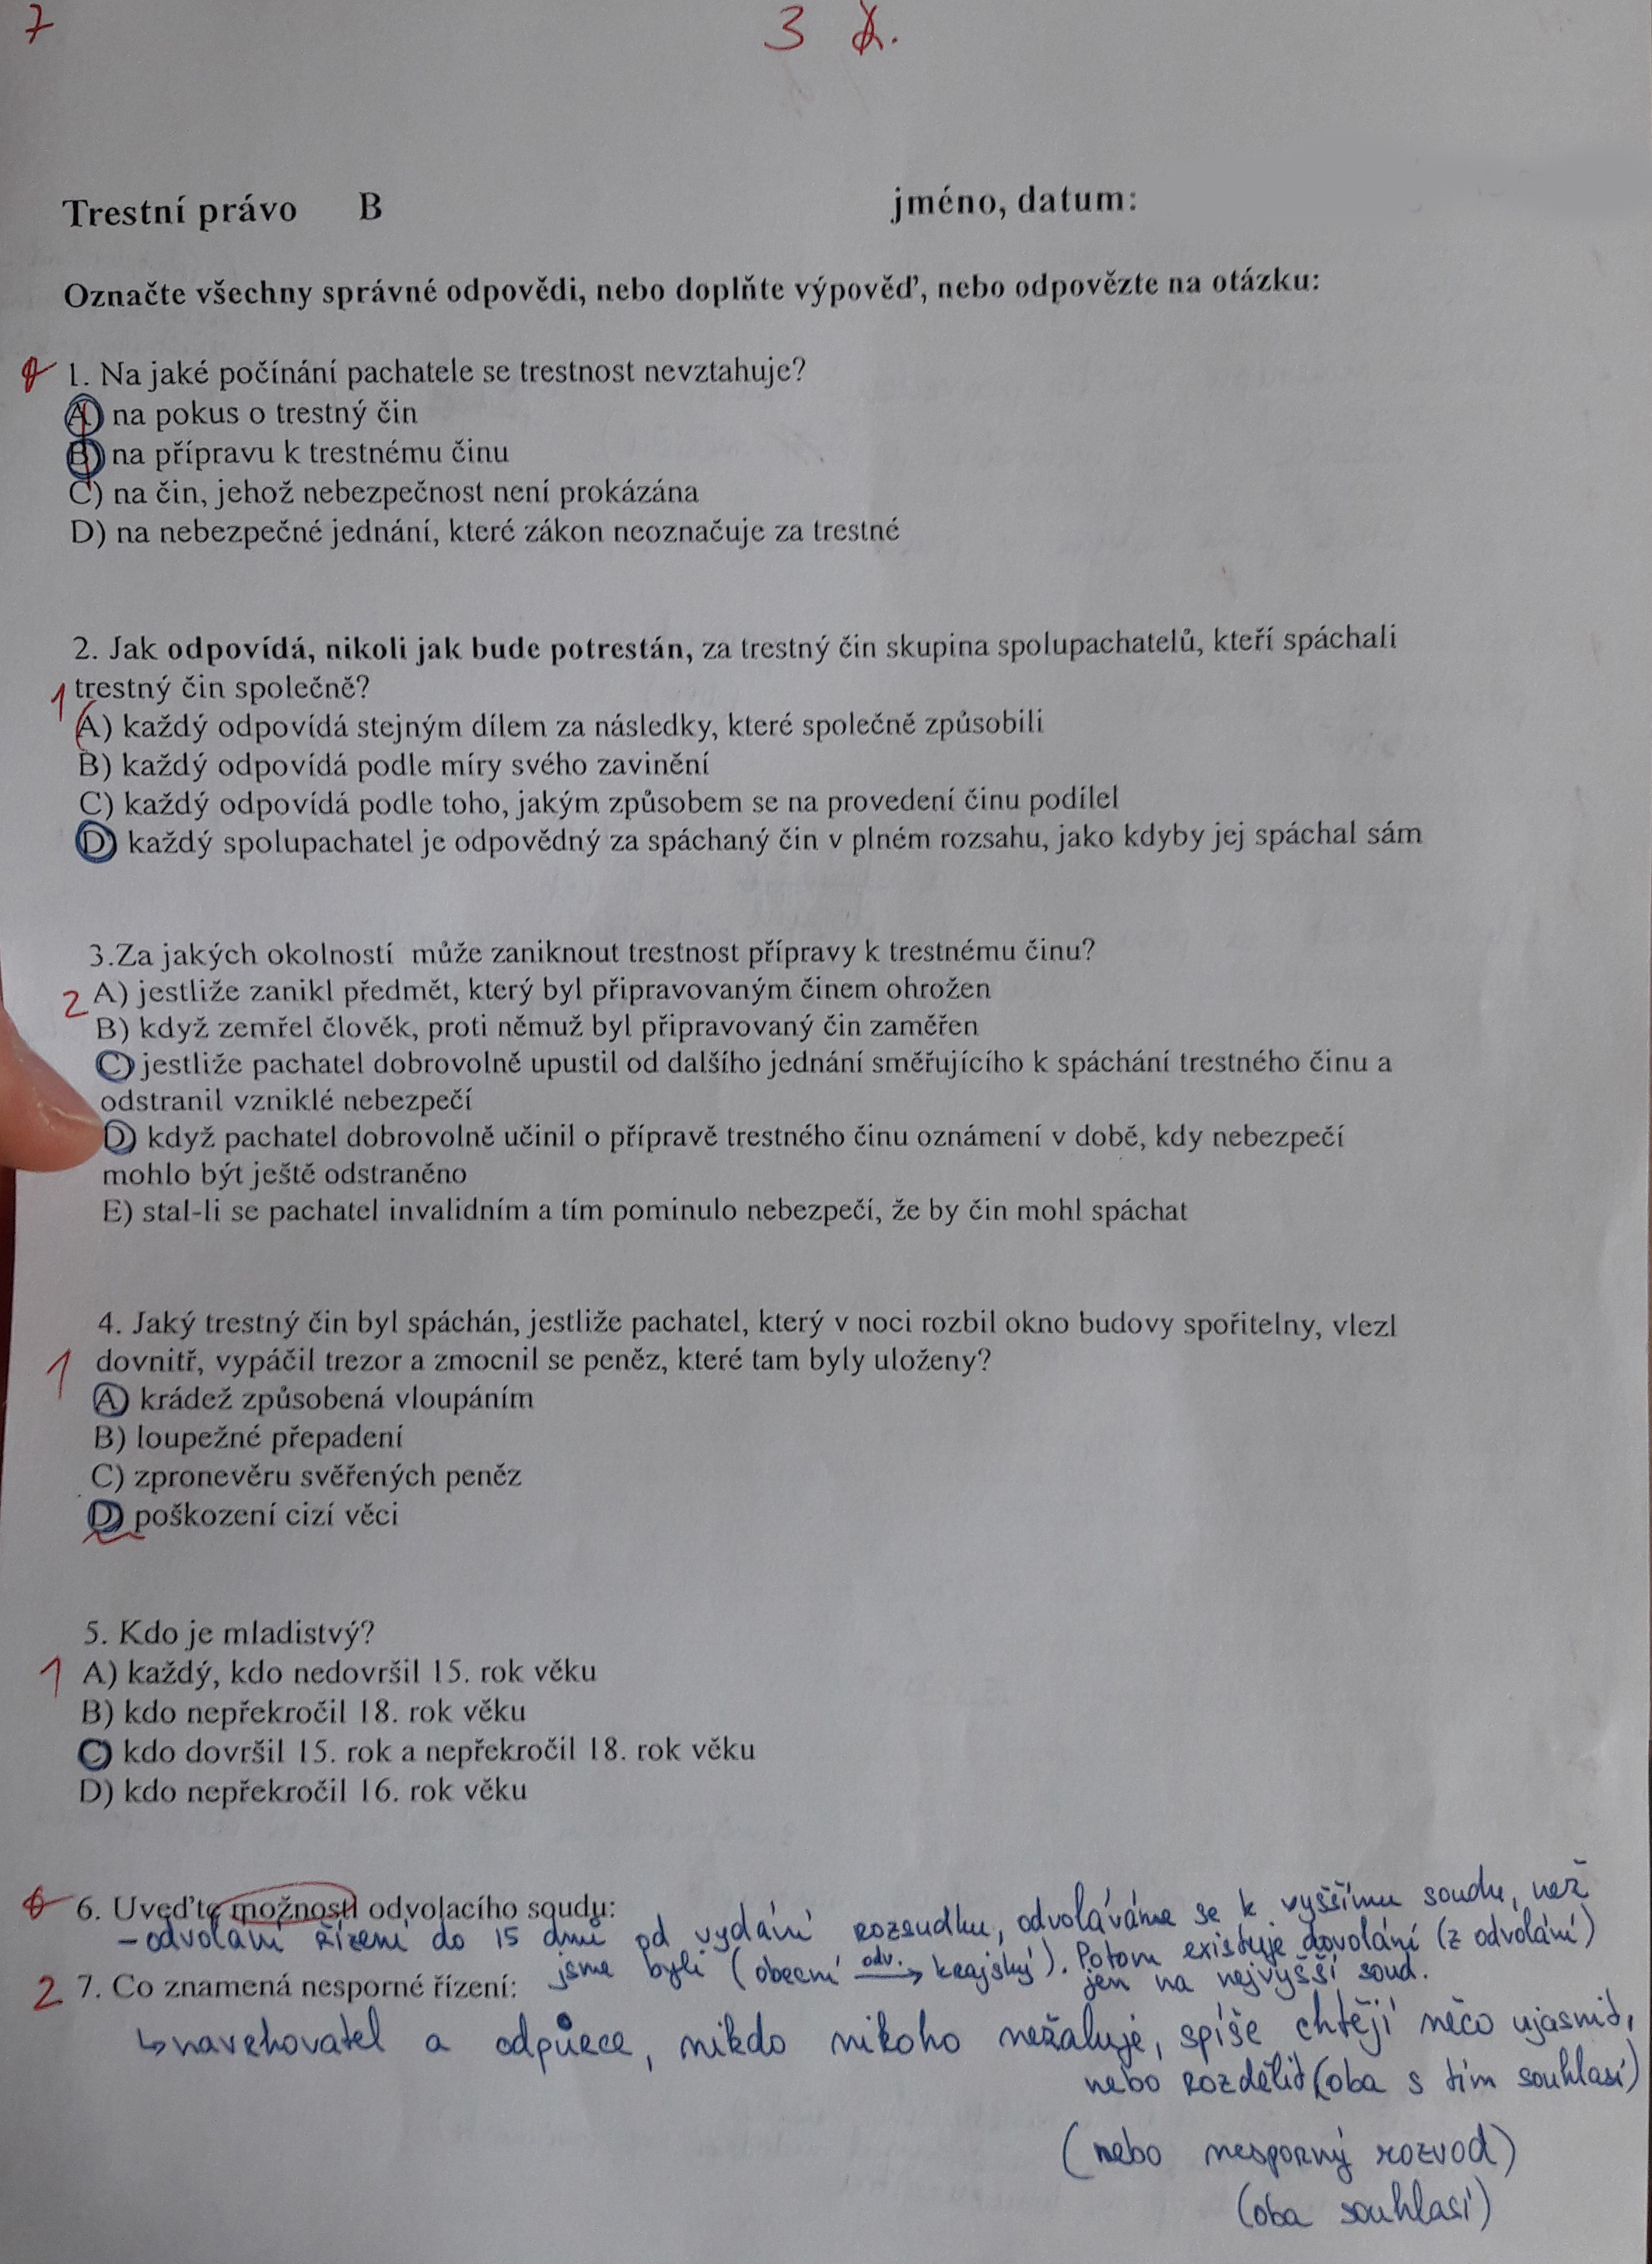 7
3
Trestní právo B jméno, datum:
Označte všechny správné odpovědi, nebo doplňte výpověď, nebo odpovězte na otázku:
1. Na jaké počínání pachatele se trestnost nevztahuje?
A) na pokus o trestný čin
B) na přípravu k trestnému činu
C) na čin, jehož nebezpečnost není prokázána
D) na nebezpečné jednání, které zákon neoznačuje za trestné
2. Jak odpovídá, nikoli jak bude potrestán, za trestný čin skupina spolupachatelů, kteří spáchali
1 trestný čin společně?
A) každý odpovídá stejným dílem za následky, které společně způsobili
B) každý odpovídá podle míry svého zavinění
C) každý odpovídá podle toho, jakým způsobem se na provedení činu podílel
D) každý spolupachatel je odpovědný za spáchaný čin v plném rozsahu, jako kdyby jej spáchal sám
3.Za jakých okolností může zaniknout trestnost přípravy k trestnému činu?
2 A) jestliže zanikl předmět, který byl připravovaným činem ohrožen
B) když zemřel člověk, proti němuž byl připravovaný čin zaměřen
C) jestliže pachatel dobrovolně upustil od dalšího jednání směřujícího k spáchání trestného činu a
odstranil vzniklé nebezpečí
D) když pachatel dobrovolně učinil o přípravě trestného činu oznámení v době, kdy nebezpečí
mohlo být ještě odstraněno
E) stal-li se pachatel invalidním a tím pominulo nebezpečí, že by čin mohl spáchat
4. Jaký trestný čin byl spáchán, jestliže pachatel, který v noci rozbil okno budovy spořitelny, vlezl
1 dovnitř, vypáčil trezor a zmocnil se peněz, které tam byly uloženy?
A) krádež způsobená vloupáním
B) loupežné přepadení
C) zpronevěru svěřených peněz
D) poškození cizí věci
5. Kdo je mladistvý?
1 A) každý, kdo nedovršil 15. rok věku
B) kdo nepřekročil 18. rok věku
C) kdo dovršil 15. rok a nepřekročil 18. rok věku
D) kdo nepřekročil 16. rok věku
6. Uveďte možnosti odvolacího soudu:
- odvolání řízení do 15 dnů od vydání rozsudku, odvoláváme se k vyššímu soudu, než
jsme byli (obecní odv. → krajský). Potom existuje dovolání (z odvolání)
jen na nejvyšší soud.
2 7. Co znamená nesporné řízení:
↳ navrhovatel a odpůrce, nikdo nikoho nežaluje, spíše chtějí něco ujasnit,
nebo rozdělit (oba s tím souhlasí)
(nebo nesporný rozvod)
(oba souhlasí)